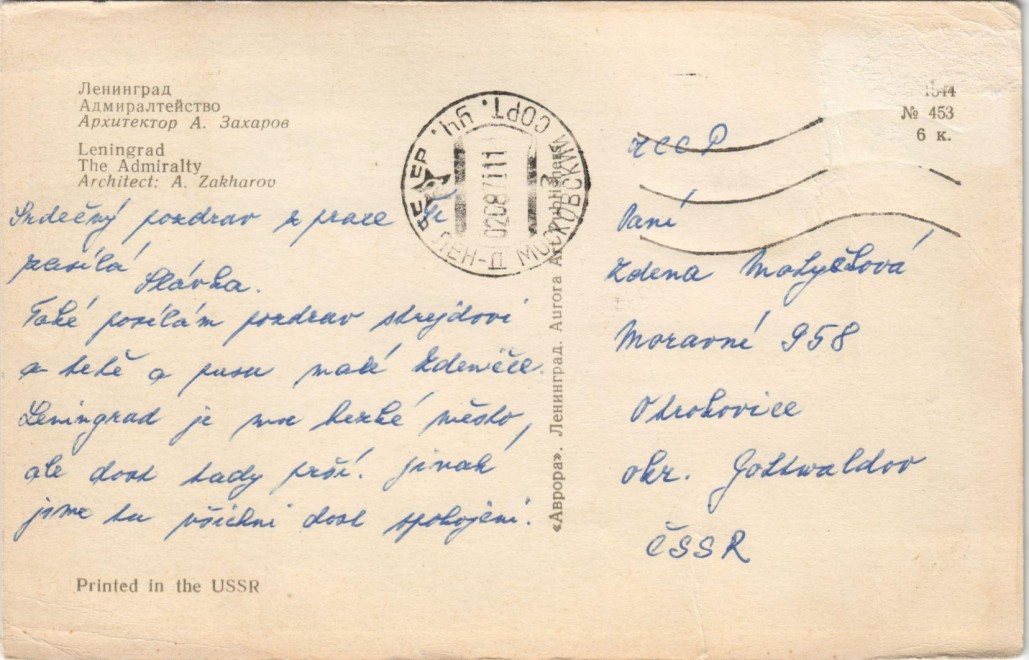 Ленинград
Адмиралтейство
Архитектор А. Захаров
Leningrad
The Admiralty
Architect: A. Zakharov
Srdečný pozdrav z prace Ti
zasílá
Slávka.
Také posílám pozdrav strejdovi
a tetě a pusu malé Zdeničce.
Leningrad je moc hezké město,
ale dost tady prší. jinak
jsme tu všichni dost spokojeni.
Printed in the USSR
«Аврора». Ленинград. Aurora Publishers
СССР
ЛЕН-Д МОСКОВСКИЙ СОРТ. УЧ.
020871 11
№ 453
6 к.
ЧССР
Paní
Zdena Matyášová
Moravní 958
Otrokovice
okr. Gottwaldov
ČSSR